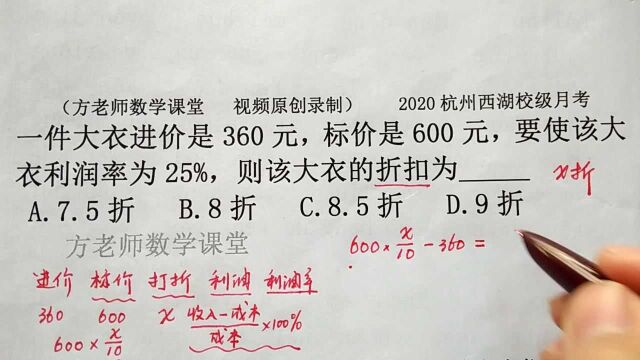 （方老师数学课堂 视频原创录制） 2020杭州西湖校级月考
一件大衣进价是360元，标价是600元，要使该大
衣利润率为25%，则该大衣的折扣为_____ x折
A.7.5折 B.8折 C.8.5折 D.9折
方老师数学课堂 600×x/10-360=
进价 标价 打折 利润 利润率
360 600 x 收入-成本/成本×100%
600×x/10